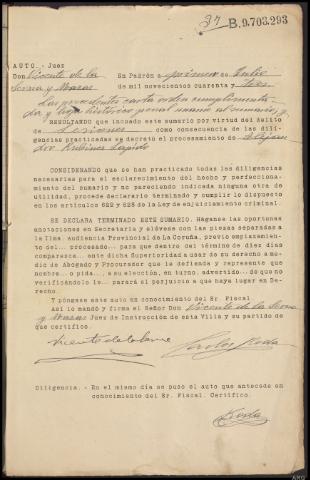 37 B.9.703.293
AUTO.- Juez
Don Vicente de la
Serna y
En Padrón a primero de Julio
de mil novecientos cuarenta y tres.
Las precedentes carta orden cumplimenta-
da y hoja histórico penal únanse al sumario, y
RESULTANDO que incoado este sumario por virtud del delito
de Lesiones como consecuencia de las dili-
gencias practicadas se decretó el procesamiento de
CONSIDERANDO que se han practicado todas las diligencias
necesarias para el esclarecimiento del hecho y perfeccionamiento
del sumario y no pareciendo indicada ninguna otra de
utilidad, procede declararlo terminado y cumplir lo dispuesto
en los artículos 622 y 623 de la Ley de enjuiciamiento criminal.
SE DECLARA TERMINADO ESTE SUMARIO. Háganse las oportunas
anotaciones en Secretaría y elévese con las piezas separadas a
la Ilma. audiencia Provincial de La Coruña, previo emplazamien-
to del.. procesado.. para que dentro del término de diez días
comparezca.. ante dicha Superioridad a usar de su derecho a me-
dio de Abogado y Procurador que la defienda y represente y nombre
o pida.., a su elección, en turno, advertido.. de que no
verificándolo le.. parará el perjuicio a que haya lugar en De-
recho.
Y póngase este auto en conocimiento del Sr. Fiscal.
Así lo mandó y firma el Señor Don Vicente de la Serna
y Juez de Instrucción de esta Villa y su partido de
que certifico.
Vicente de la Serna
Roda
Diligencia.- En el mismo día se puso el auto que antecede en
conocimiento del Sr. Fiscal. Certifico.
Roda